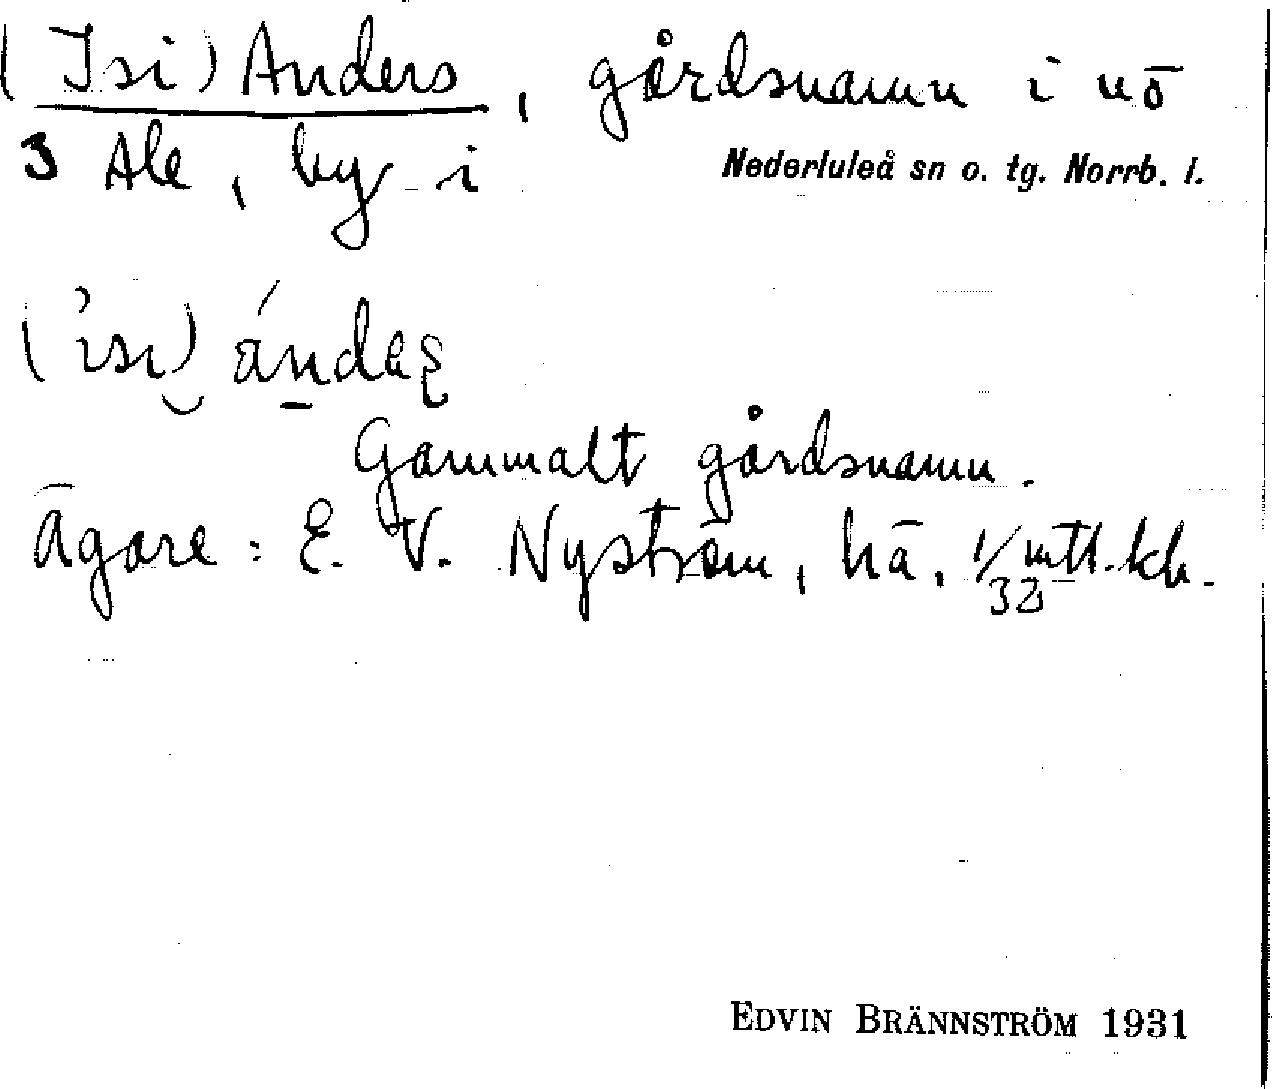 (Isi) Anders, gårdsnamn i nö
3 Ale, by i Nederluleå sn o. tg. Norrb. l.
Gammalt gårdsnamn.
Ägare: E. V. Nyström, hä, 1/32 mtl. kh.
EDVIN BRÄNNSTRÖM 1931